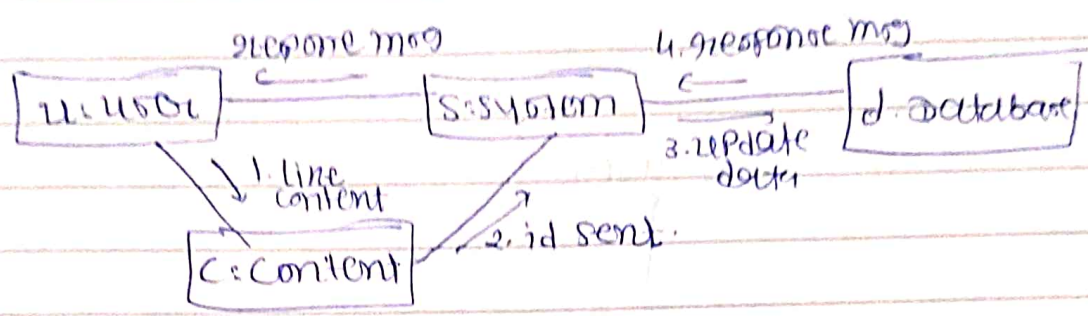 response msg
4. response msg
u: user
s: system
d. Database
3. update
data
1. line
content
2. id sent.
c: content